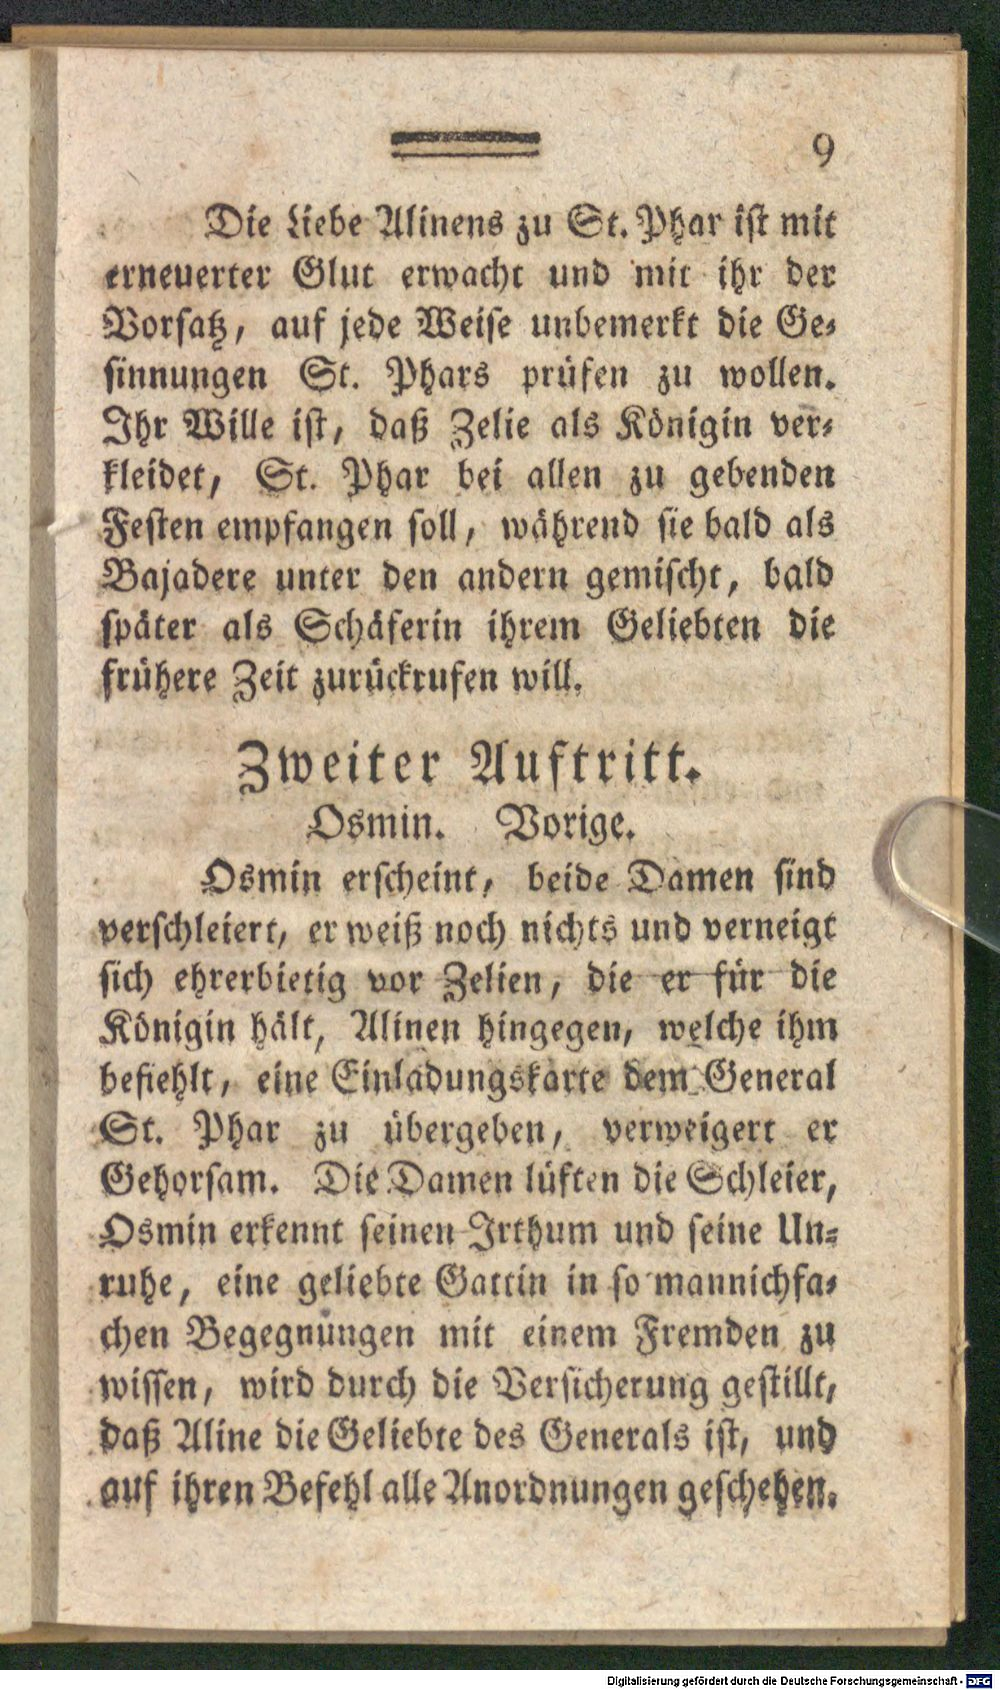 9
Die Liebe Alinens zu St. Phar ist mit
erneuerter Glut erwacht und mit ihr der
Vorsatz, auf jede Weise unbemerkt die Ge-
sinnungen St. Phars prüfen zu wollen.
Ihr Wille ist, daß Zelie als Königin ver-
kleidet, St. Phar bei allen zu gebenden
Festen empfangen soll, während sie bald als
Bajadere unter den andern gemischt, bald
später als Schäferin ihrem Geliebten die
frühere Zeit zurückrufen will.
Zweiter Auftritt.
Osmin. Vorige.
Osmin erscheint, beide Damen sind
verschleiert, er weiß noch nichts und verneigt
sich ehrerbietig vor Zelien, die er für die
Königin hält, Alinen hingegen, welche ihm
befiehlt, eine Einladungskarte dem General
St. Phar zu übergeben, verweigert er
Gehorsam. Die Damen lüften die Schleier,
Osmin erkennt seinen Irthum und seine Un-
ruhe, eine geliebte Gattin in so mannichfa-
chen Begegnungen mit einem Fremden zu
wissen, wird durch die Versicherung gestillt,
daß Aline die Geliebte des Generals ist, und
auf ihren Befehl alle Anordnungen geschehen.
Digitalisierung gefördert durch die Deutsche Forschungsgemeinschaft - DFG